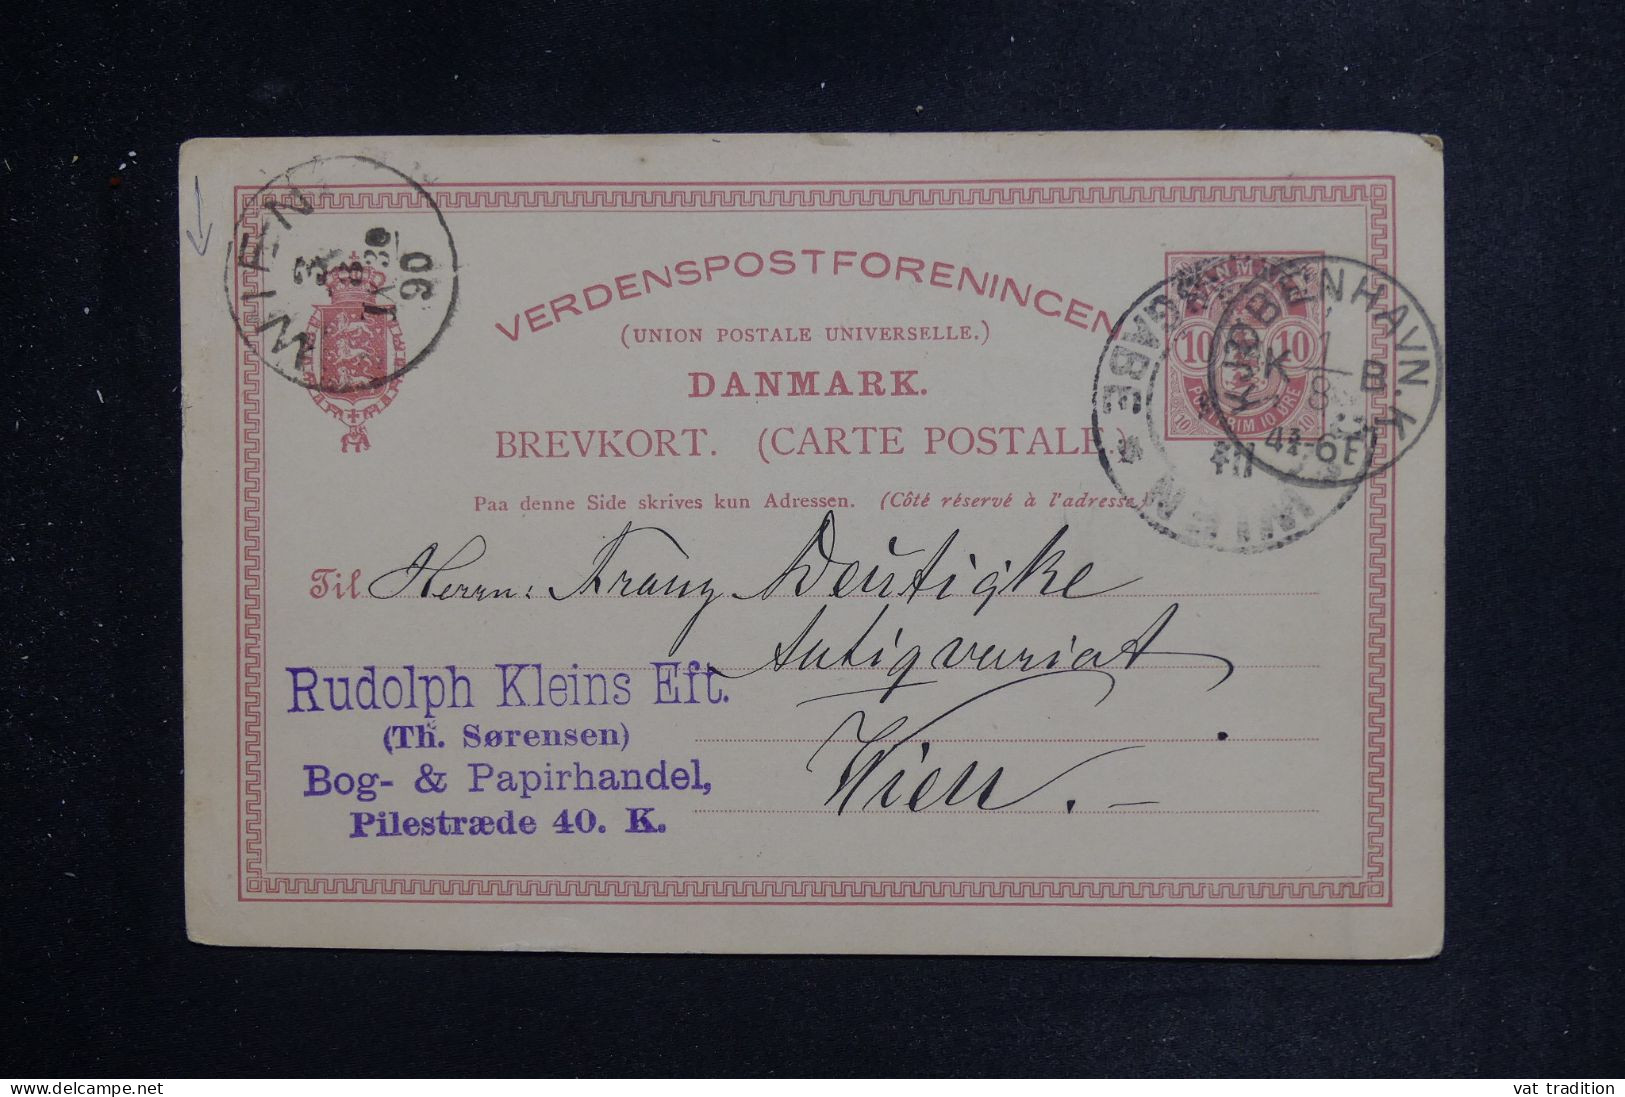 WIEN
3
8
90
VERDENSPOSTFORENINGEN
(UNION POSTALE UNIVERSELLE.)
DANMARK.
BREVKORT. (CARTE POSTALE.)
Paa denne Side skrives kun Adressen. (Côté réservé à l'adresse.)
10 10
KJØBENHAVN.K.
K 1 B
8
Til Herrn: Franz Deutigke
Antiqvariat
Wien. –
Rudolph Kleins Eft.
(Th. Sørensen)
Bog- & Papirhandel,
Pilestræde 40. K.
vat tradition